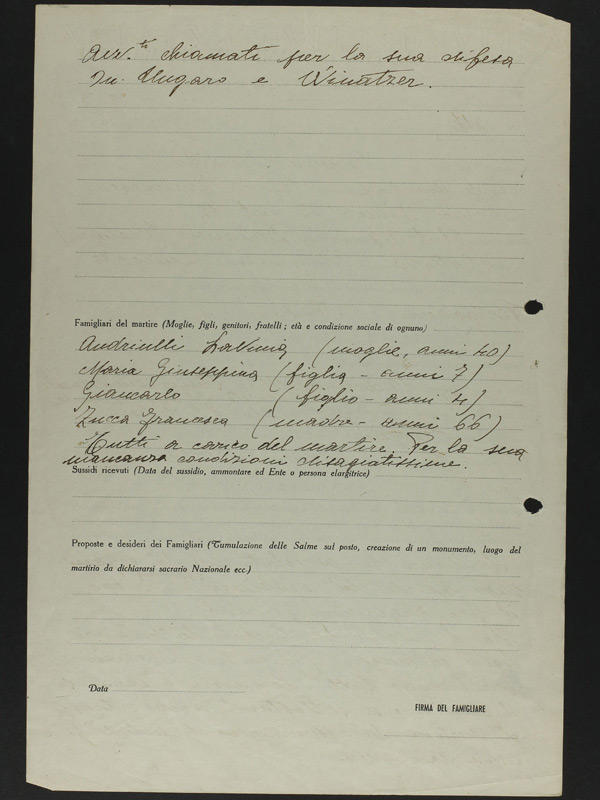 Avv.ti chiamati per la sua difesa
In. Ungaro e Winatzer.
Famigliari del martire (Moglie, figli, genitori, fratelli ; età e condizione sociale di ognuno)
Andriulli Lavinia (moglie, anni 40)
Maria Giuseppina (figlia - anni 7)
Giancarlo (figlio - anni 4)
Zucca Francesca (madre - anni 66)
Tutti a carico del martire. Per la sua
mancanza condizioni disagiatissime.
Sussidi ricevuti (Data del sussidio, ammontare ed Ente o persona elargitrice)
Proposte e desideri dei Famigliari (Tumulazione delle Salme sul posto, creazione di un monumento, luogo del
martirio da dichiararsi sacrario Nazionale ecc.)
Data
FIRMA DEL FAMIGLIARE